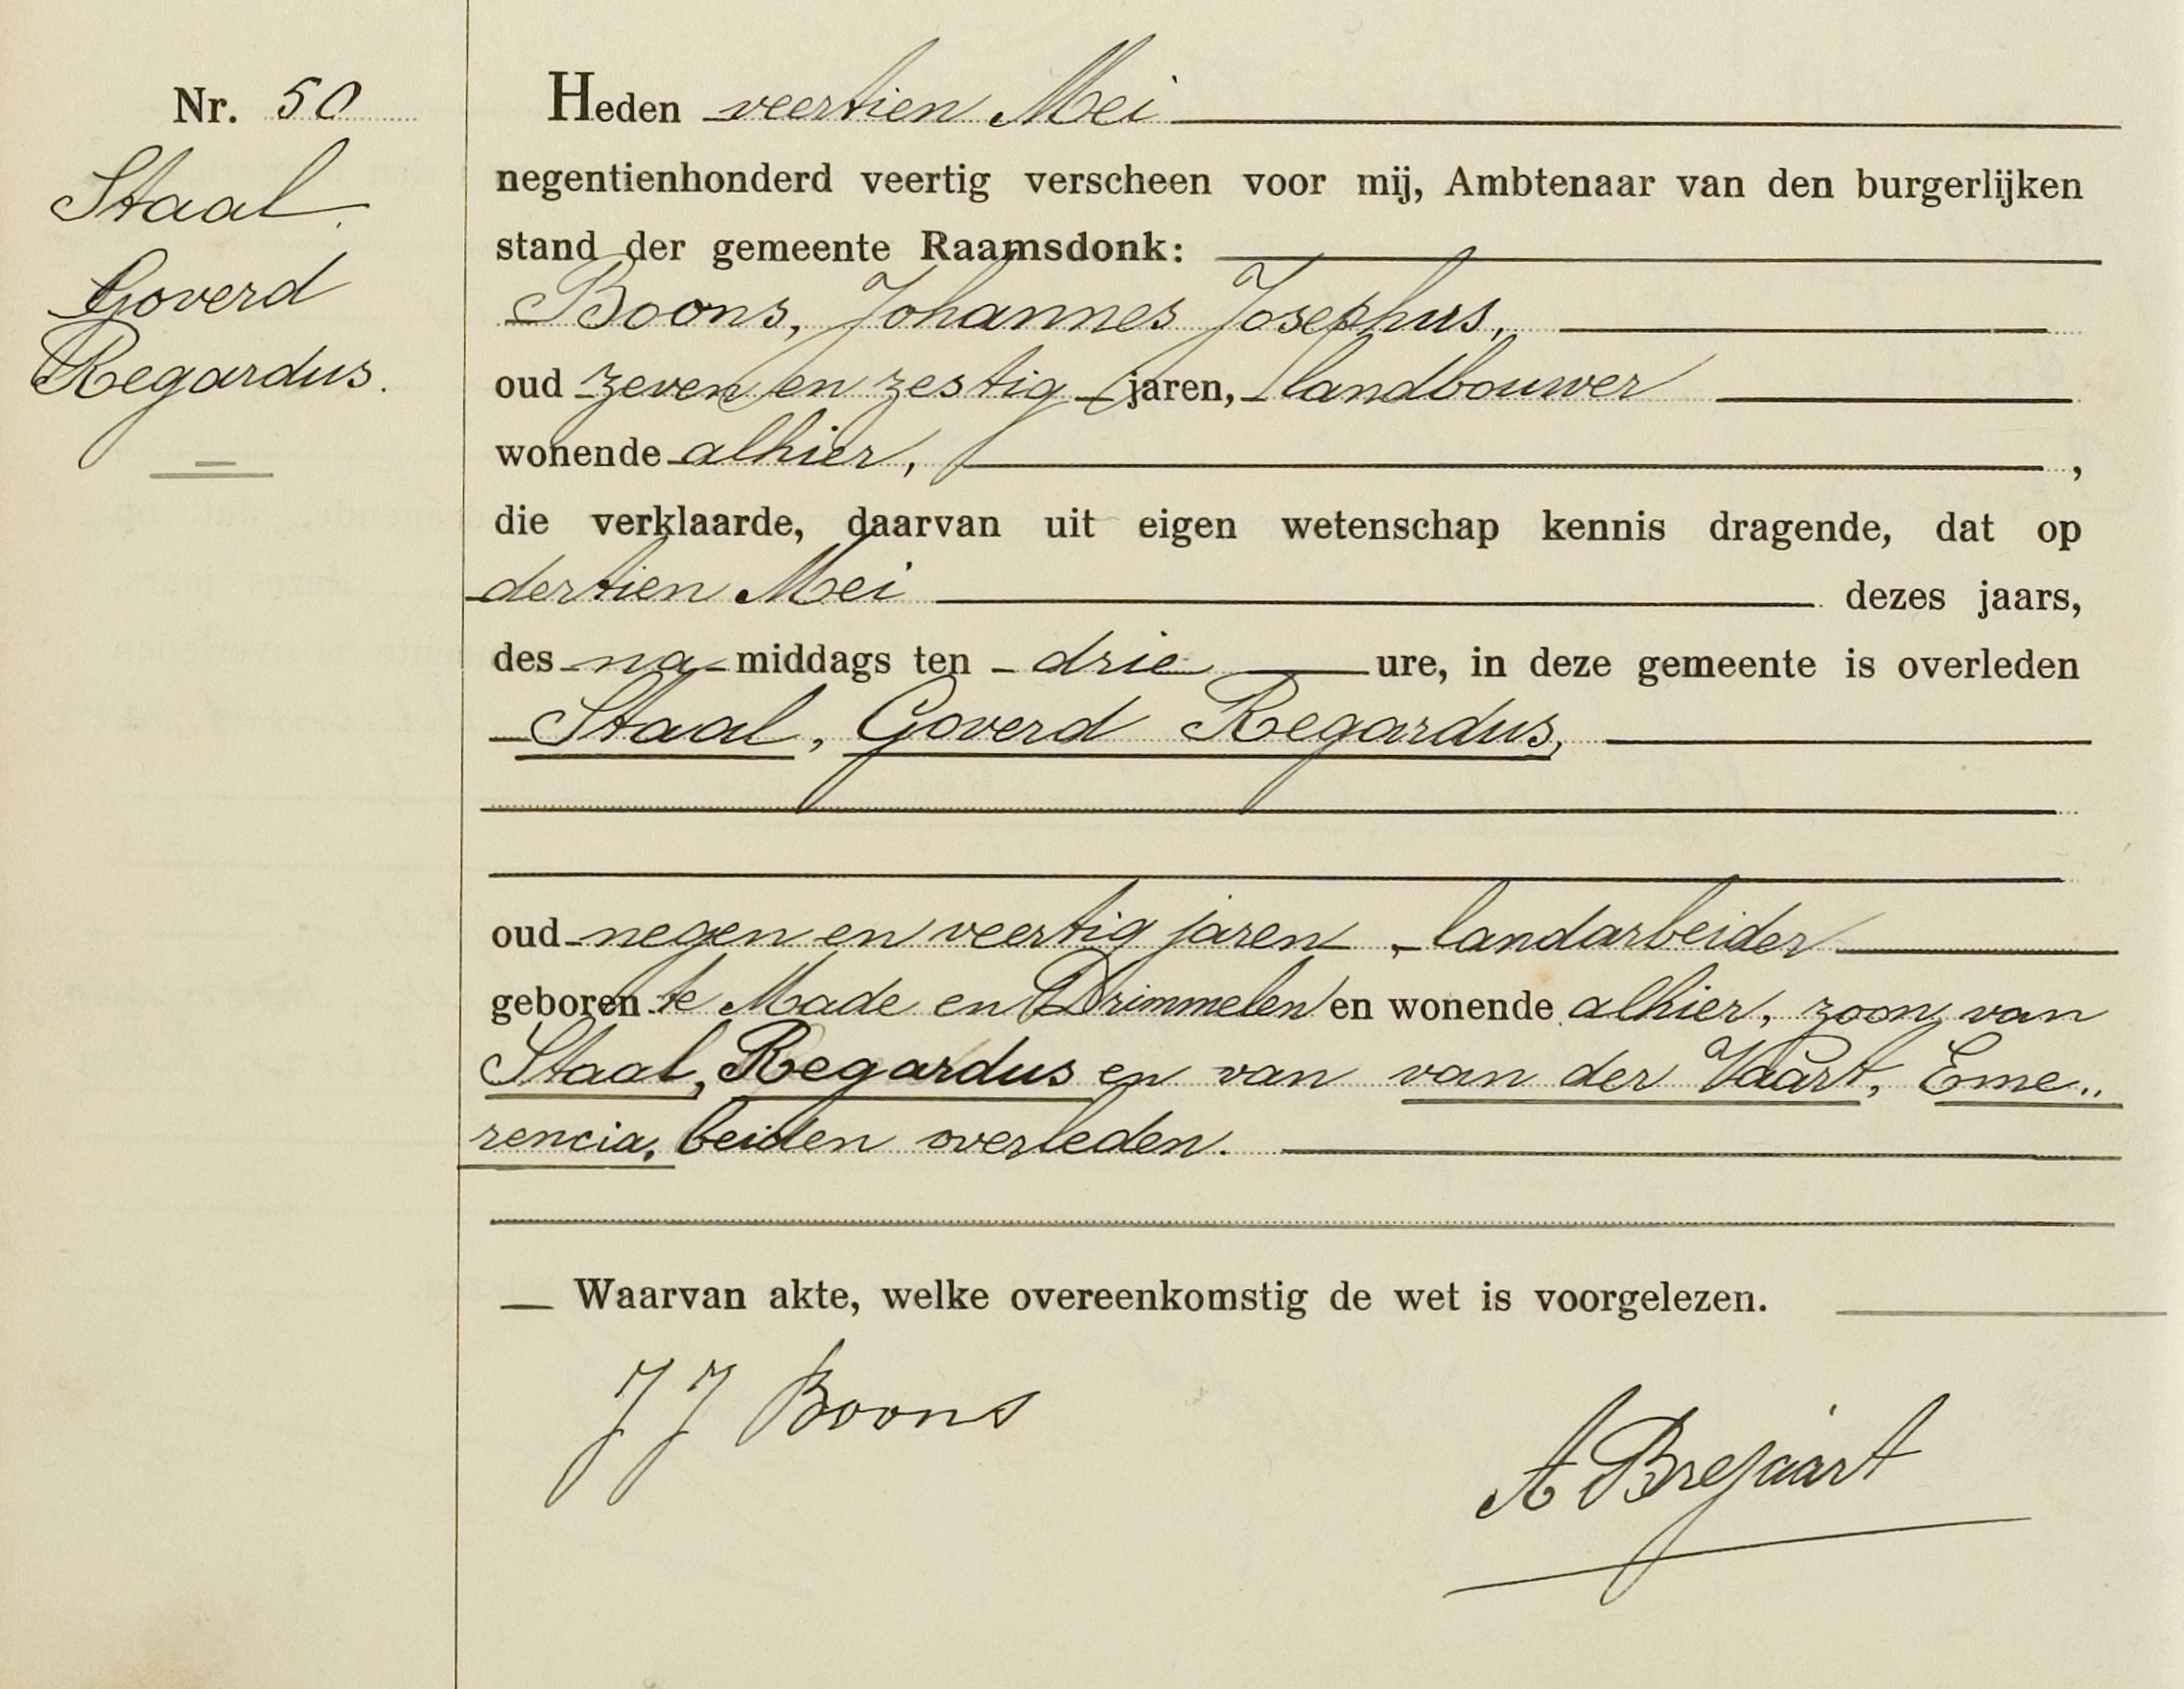 Nr. 50
Staal.
Goverd
Regardus.
Heden veertien Mei
negentienhonderd veertig verscheen voor mij, Ambtenaar van den burgerlijken
stand der gemeente Raamsdonk:
Boons, Johannes Josephus,
oud zeven en zestig jaren, landbouwer
wonende alhier, ,
die verklaarde, daarvan uit eigen wetenschap kennis dragende, dat op
dertien Mei dezes jaars,
des na middags ten drie ure, in deze gemeente is overleden
Staal, Goverd Regardus,
oud negen en veertig jaren, landarbeider
geboren te Made en Drimmelen en wonende alhier, zoon van
Staal, Regardus en van van der Vaart, Eme..
rencia, beiden overleden.
Waarvan akte, welke overeenkomstig de wet is voorgelezen.
J J Boons
A Brejaart